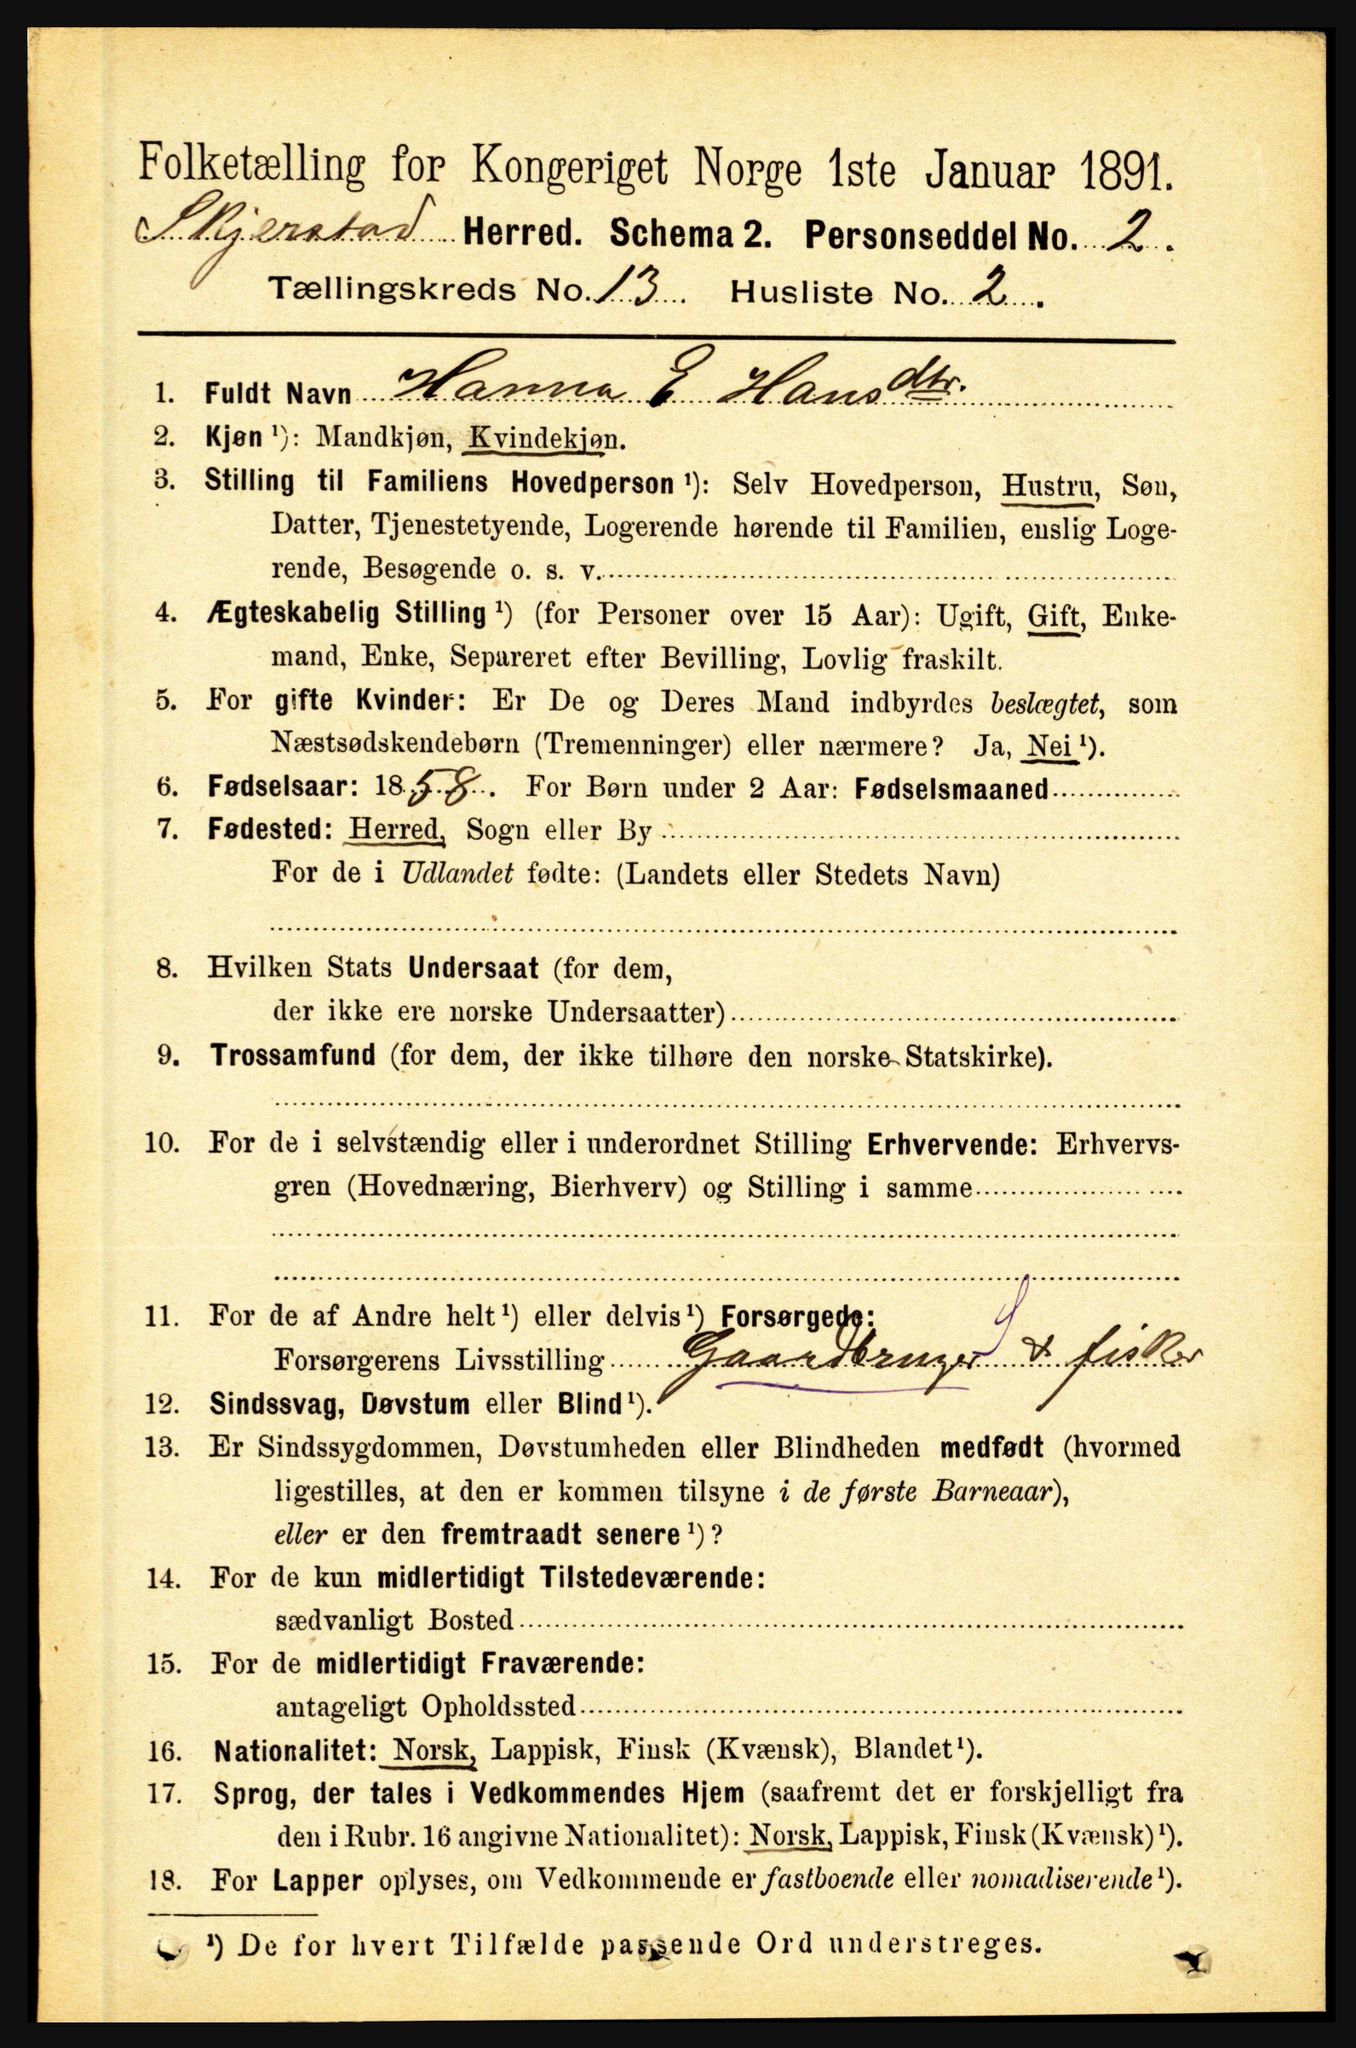 Folketælling for Kongeriget Norge 1ste Januar 1891.
Skjerstad Herred. Schema 2. Personseddel No. 2.
Tællingskreds No. 13. Husliste No. 2.
1. Fuldt Navn Hanna E Hansdtr.
2. Kjøn ¹): Mandkjøn, Kvindekjøn.
3. Stilling til Familiens Hovedperson ¹): Selv Hovedperson, Hustru, Søn,
Datter, Tjenestetyende, Logerende hørende til Familien, enslig Loge-
rende, Besøgende o. s. v.
4. Ægteskabelig Stilling ¹) (for Personer over 15 Aar): Ugift, Gift, Enke-
mand, Enke, Separeret efter Bevilling, Lovlig fraskilt.
5. For gifte Kvinder: Er De og Deres Mand indbyrdes beslægtet, som
Næstsødskendebørn (Tremenninger) eller nærmere? Ja, Nei ¹).
6. Fødselsaar: 1858. For Børn under 2 Aar: Fødselsmaaned
7. Fødested: Herred, Sogn eller By
For de i Udlandet fødte: (Landets eller Stedets Navn)
8. Hvilken Stats Undersaat (for dem,
der ikke ere norske Undersaatter)
9. Trossamfund (for dem, der ikke tilhøre den norske Statskirke).
10. For de i selvstændig eller i underordnet Stilling Erhvervende: Erhvervs-
gren (Hovednæring, Bierhverv) og Stilling i samme
11. For de af Andre helt ¹) eller delvis ¹) Forsørgede:
Forsørgerens Livsstilling Gaardbruger & fisker
12. Sindssvag, Døvstum eller Blind ¹).
13. Er Sindssygdommen, Døvstumheden eller Blindheden medfødt (hvormed
ligestilles, at den er kommen tilsyne i de første Barneaar),
eller er den fremtraadt senere ¹)?
14. For de kun midlertidigt Tilstedeværende:
sædvanligt Bosted
15. For de midlertidigt Fraværende:
antageligt Opholdssted
16. Nationalitet: Norsk, Lappisk, Finsk (Kvænsk), Blandet ¹).
17. Sprog, der tales i Vedkommendes Hjem (saafremt det er forskjelligt fra
den i Rubr. 16 angivne Nationalitet): Norsk, Lappisk, Finsk (Kvænsk) ¹).
18. For Lapper oplyses, om Vedkommende er fastboende eller nomadiserende ¹).
¹) De for hvert Tilfælde passende Ord understreges.